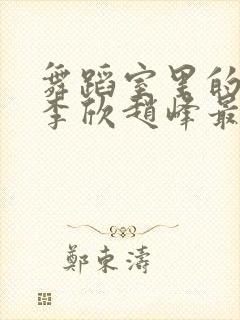 舞蹈室里的
李欣趙峰最
鄭東濤